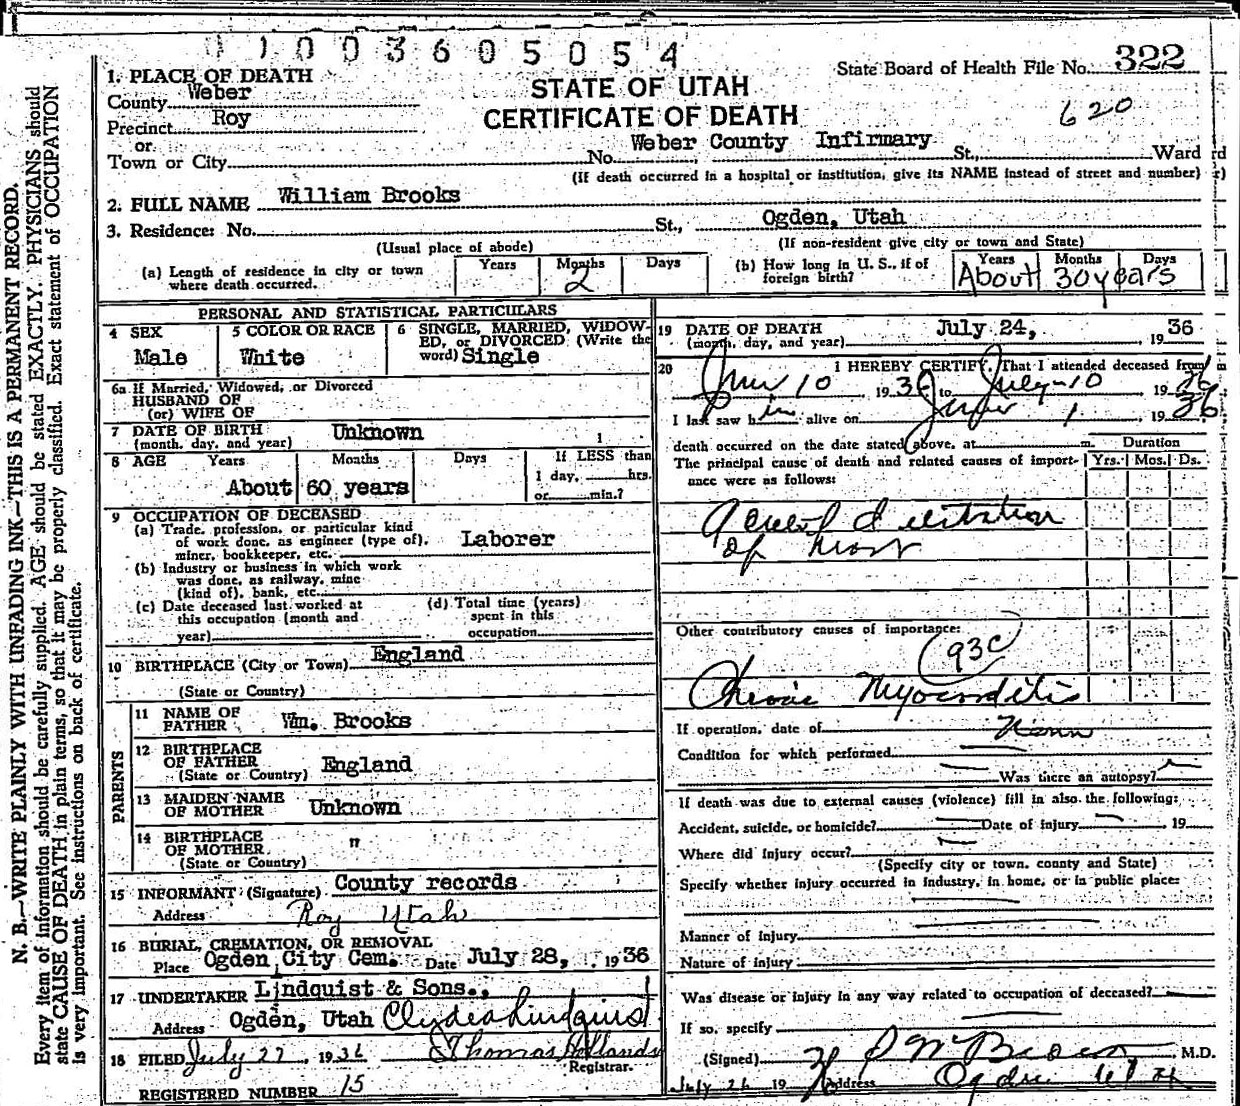 01003605054
State Board of Health File No. 322
1. PLACE OF DEATH
STATE OF UTAH
County Weber
CERTIFICATE OF DEATH
620
Precinct Roy
or
Town or City
No. Weber County Infirmary St., Ward
(If death occurred in a hospital or institution, give its NAME instead of street and number)
2. FULL NAME William Brooks
3. Residence: No. St., Ogden, Utah
(Usual place of abode) (If non-resident give city or town and State)
(a) Length of residence in city or town where death occurred. Years Months 2 Days
(b) How long in U. S., if of foreign birth? Years Months Days About 30 years
PERSONAL AND STATISTICAL PARTICULARS
4 SEX Male
5 COLOR OR RACE White
6 SINGLE, MARRIED, WIDOWED, or DIVORCED (Write the word) Single
6a If Married, Widowed, or Divorced
HUSBAND OF
(or) WIFE OF
7 DATE OF BIRTH (month, day, and year) Unknown
8 AGE Years Months Days If LESS than
1 day, hrs.
or min.?
About 60 years
9 OCCUPATION OF DECEASED
(a) Trade, profession, or particular kind
of work done, as engineer (type of),
miner, bookkeeper, etc. Laborer
(b) Industry or business in which work
was done, as railway, mine
(kind of), bank, etc.
(c) Date deceased last worked at
this occupation (month and
year)
(d) Total time (years)
spent in this
occupation
10 BIRTHPLACE (City or Town) England
(State or Country)
PARENTS
11 NAME OF FATHER Wm. Brooks
12 BIRTHPLACE OF FATHER (State or Country) England
13 MAIDEN NAME OF MOTHER Unknown
14 BIRTHPLACE OF MOTHER (State or Country) "
15 INFORMANT (Signature) County records
Address Roy Utah
16 BURIAL, CREMATION, OR REMOVAL
Place Ogden City Cem. Date July 28, 1936
17 UNDERTAKER Lindquist & Sons.,
Address Ogden, Utah Clyde Lindquist
18 FILED July 27, 1936 Thomas Hollands
Registrar.
REGISTERED NUMBER 15
19 DATE OF DEATH (month, day, and year) July 24, 1936
20 I HEREBY CERTIFY, That I attended deceased from
10 1936 to July-10 1936
I last saw him alive on 1 1936
death occurred on the date stated above, at m.
Duration
The principal cause of death and related causes of importance were as follows:
Yrs. Mos. Ds.
of
Other contributory causes of importance:
93c
Chronic Myocarditis
If operation, date of None
Condition for which performed
Was there an autopsy?
If death was due to external causes (violence) fill in also the following:
Accident, suicide, or homicide? Date of injury 19
Where did injury occur?
(Specify city or town, county and State)
Specify whether injury occurred in industry, in home, or in public place:
Manner of injury
Nature of injury
Was disease or injury in any way related to occupation of deceased?
If so, specify
(Signed) M.D.
July 26 19 Address Ogden Utah
N. B.—WRITE PLAINLY WITH UNFADING INK—THIS IS A PERMANENT RECORD.
Every item of information should be carefully supplied. AGE should be stated EXACTLY. PHYSICIANS should
state CAUSE OF DEATH in plain terms, so that it may be properly classified. Exact statement of OCCUPATION
is very important. See instructions on back of certificate.